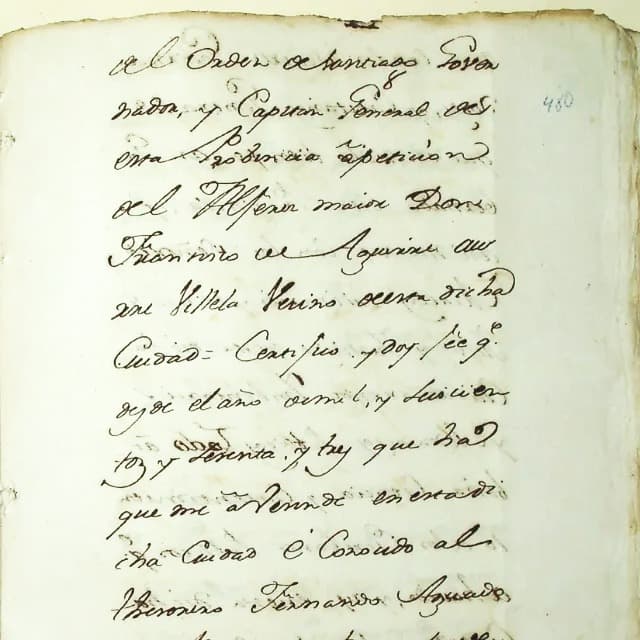 del Orden de Santiago Gover
nador, y Capitan General de
esta Provincia à petición
del Alferes maior Don
Francisco de Aguirre
Villela Vezino de esta dicha
Ciudad = Certifico y doy fèe q.e
desde el año de mil, y Seiscien
tos y setenta y tres que ha
que me à Vezindè en esta di
cha Ciudad è Conosido al
thesorero Fernando Aguado
480